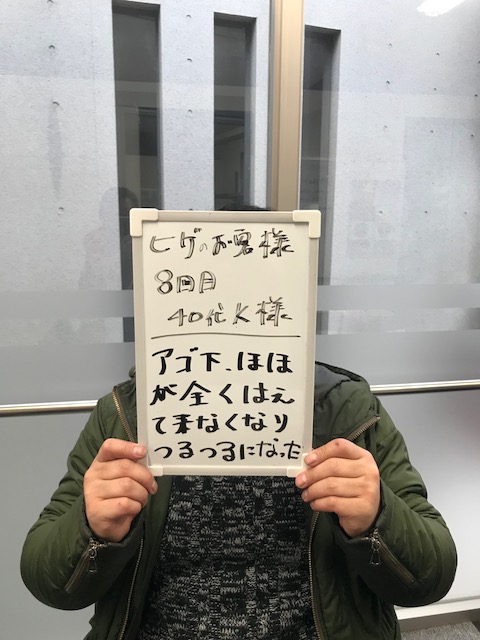 ヒゲのお客様
8回目
40代K様
アゴ下、ほほ
が全くはえ
て来なくなり
つるつるになった